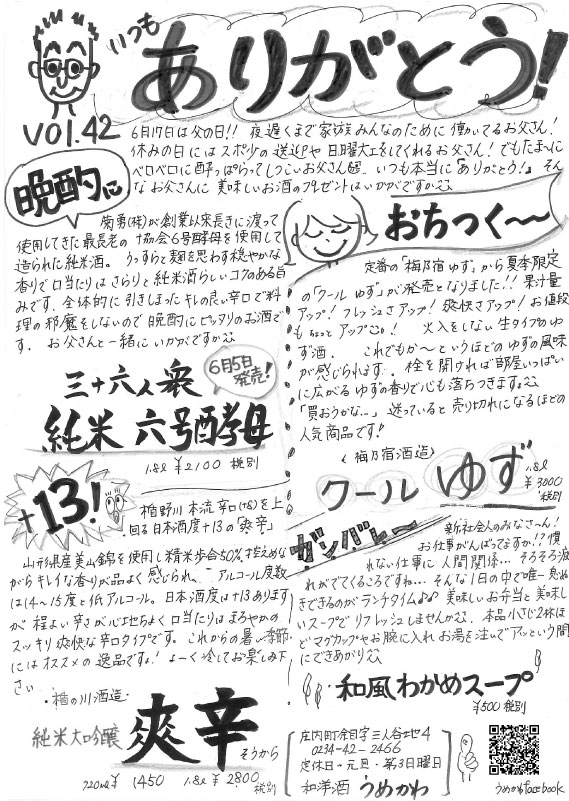 いつも
ありがとう!
VOl.42
6月17日は父の日!! 夜遅くまで家族みんなのために働いてるお父さん!
休みの日にはスポ少の送迎や日曜大工をしてくれるお父さん! でもたま〜に
ベロベロに酔っぱらってしつこいお父さん いつも本当に「ありがとう!」 そん
なお父さんに美味しいお酒のプレゼントはいかがですか
晩酌に
菊勇(株)が創業以来長きに渡って
使用してきた最長老の協会6号酵母を使用して
造られた純米酒。 うっすらと麹を思わす穏やかな
香りで口当たりはさらりと純米酒らしいコクのある旨
みです。全体的に引きしまったキレの良い辛口で料
理の邪魔をしないので晩酌にピッタリのお酒で
す。 お父さんと一緒にいかがですか
6月5日
発売!
三十六人衆
純米 六号酵母
1.8ℓ ¥2100 税別
おちつく〜〜
定番の「梅乃宿ゆず」から夏季限定
の「クール ゆず」が発売となりました!! 果汁量
アップ! フレッシュさアップ! 爽快さアップ! お値段
もちょっとアップ。 火入をしない生タイプのゆ
ず酒。 これでもか〜というほどのゆずの風味
が感じられます。 栓を開ければ部屋いっぱい
に広がるゆずの香りで心も落ちつきます。
「買おうかな…」迷っていると売り切れになるほどの
人気商品です!
〈梅乃宿酒造〉
クール ゆず
1.8ℓ
¥3000
税別
+13!
楯野川 本流辛口(+8)を上
回る日本酒度+13の「爽辛」
山形県産美山錦を使用し精米歩合50%。控えめな
がらキレイな香りが品よく感じられ、 アルコール度数
は14〜15度と低アルコール。日本酒度は+13あります
が程よい辛さが心地よく口当たりはまろやかの
スッキリ爽快な辛口タイプです。これからの暑〜い季節
にはオススメの逸品ですよ! よ〜く冷してお楽しみ下
さい
・楯の川酒造・
純米大吟醸 爽辛
そうから
720㎖ ¥1450 1.8ℓ ¥2800 税別
ガンバレ〜
新社会人のみなさ〜ん!
お仕事がんばってますか!? 慣
れない仕事に人間関係… そろそろ疲
れがでてくるころですね… そんな1日の中で唯一息ぬ
きできるのがランチタイム♪♪ 美味しいお弁当と美味し
いスープでリフレッシュしませんか 本品小さじ2杯ほ
どマグカップやお腕に入れお湯を注いでアッという間
にできあがり
和風わかめスープ
¥500 税別
庄内町余目字三人谷地4
0234-42-2466
定休日→元旦・第3日曜日
和洋酒 うめかわ
うめかわfacebook